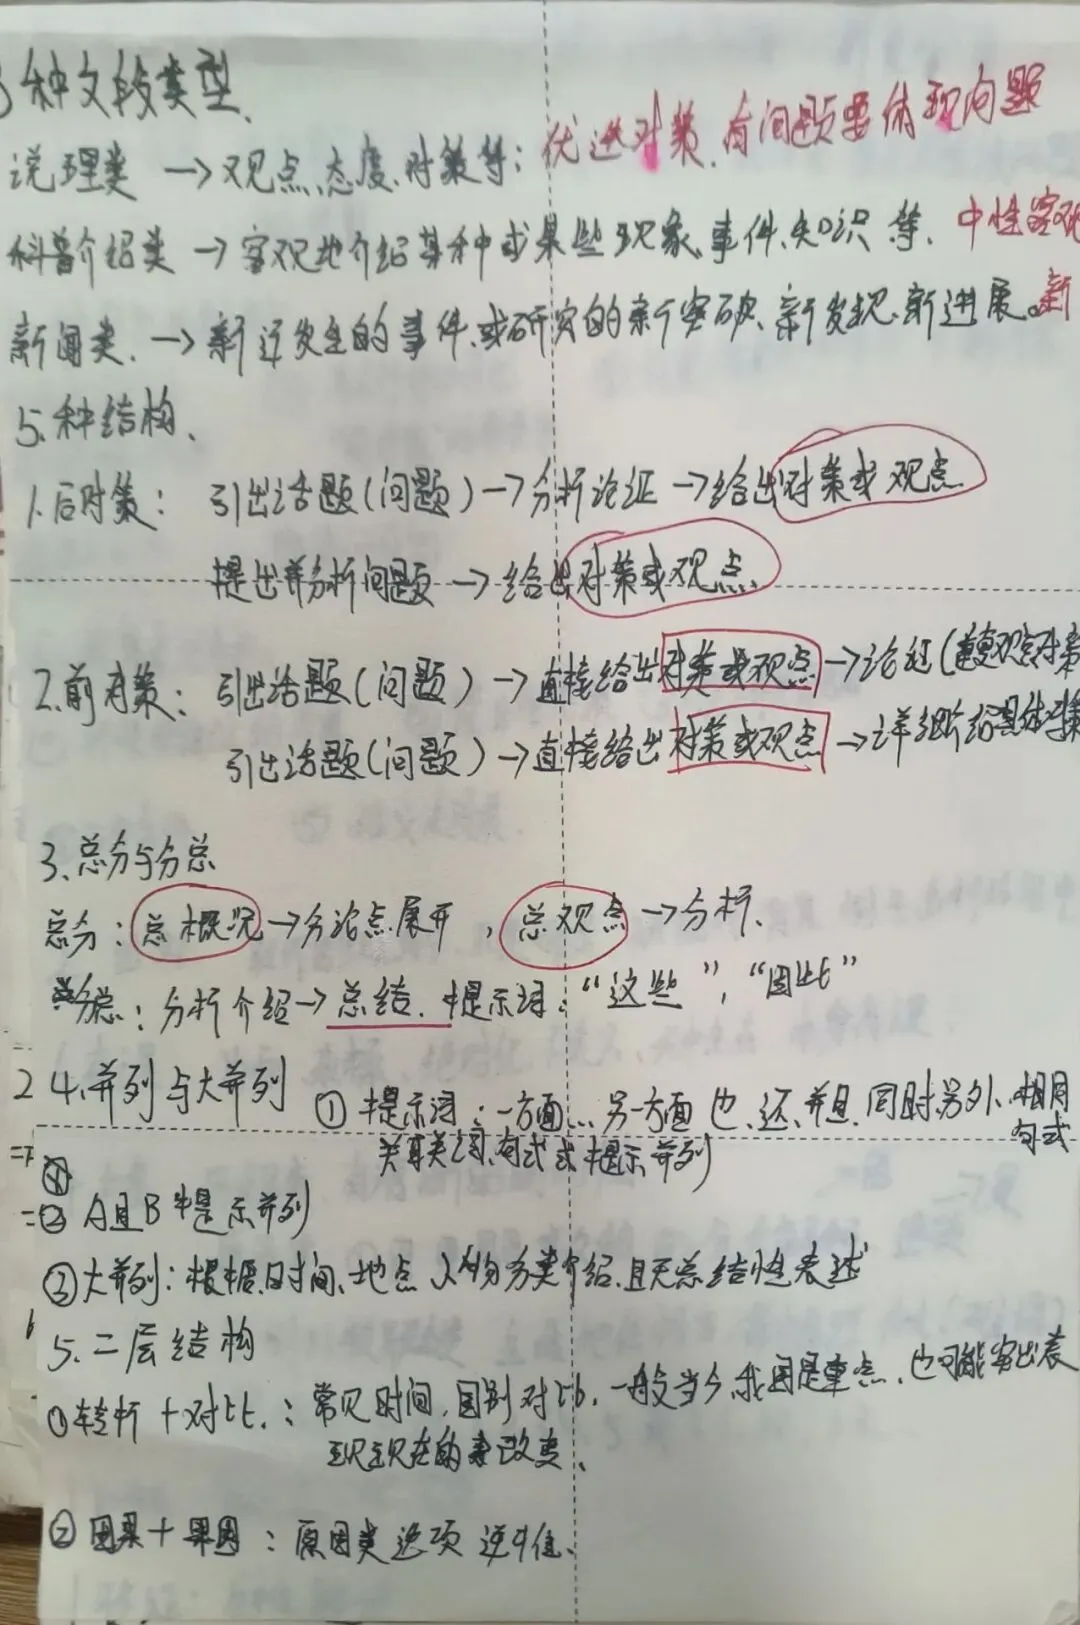 3种文段类型
说理类 → 观点、态度、对策等；优选对策，有问题要体现问题
科普介绍类 → 客观地介绍某种或某些现象、事件、知识等、中性客观
新闻类、→ 新近发生的事件、或研究的新突破、新发现、新进展。新
5、种结构、
1、后对策： 引出话题（问题）→分析论证 →给出对策或观点
提出并分析问题 → 给出对策或观点、
2、前对策： 引出话题（问题）→直接给出对策或观点→论证（观点对策
引出话题（问题）→直接给出对策或观点→详细给具体对策
3、总分与分总
总分：总概况→分论点展开，总观点→分析、
分总：分析介绍→总结、提示词：“这些”，“因此”
2 4、并列与大并列 ① 提示词：一方面…另一方面 也、还、并且、同时、另外、相同
句式
关联类词、句式 提示并列
② A且B 提示并列
③大并列：根据、时间、地点 人物分类介绍、且无总结性表述
5、二层结构
①转折+对比、：常见时间、国别对比，一般当今、我国是重点、也可能突出表
现现在的改变、
② 因果+果因：原因类选项